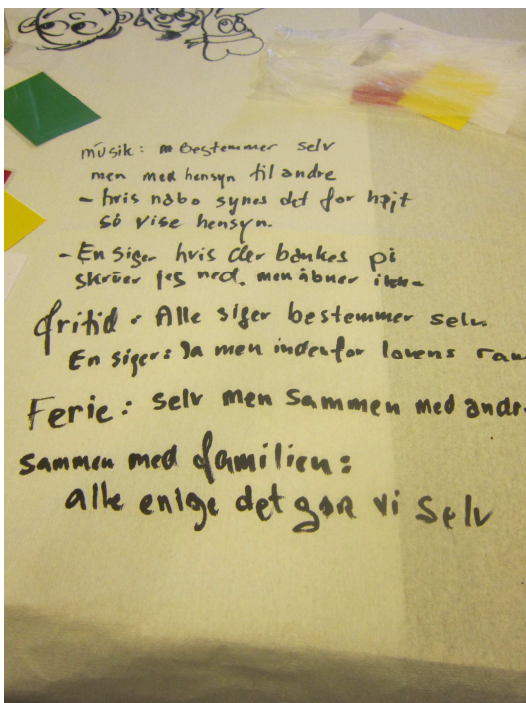 musik: Bestemmer selv
men med hensyn til andre
- hvis nabo synes det for højt
så vise hensyn.
- En siger hvis der bankes på
skruer jeg ned. men åbner ikke
fritid: Alle siger bestemmer selv.
En siger: Ja men indenfor lovens ram
Ferie: selv men sammen med andr
sammen med familien:
alle enige det gør vi selv